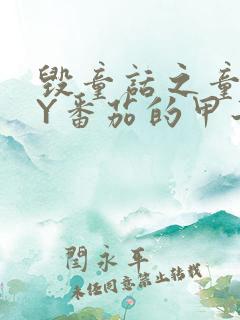 毁童话之童
Y番茄的甲
闫永年
未经同意禁止转载